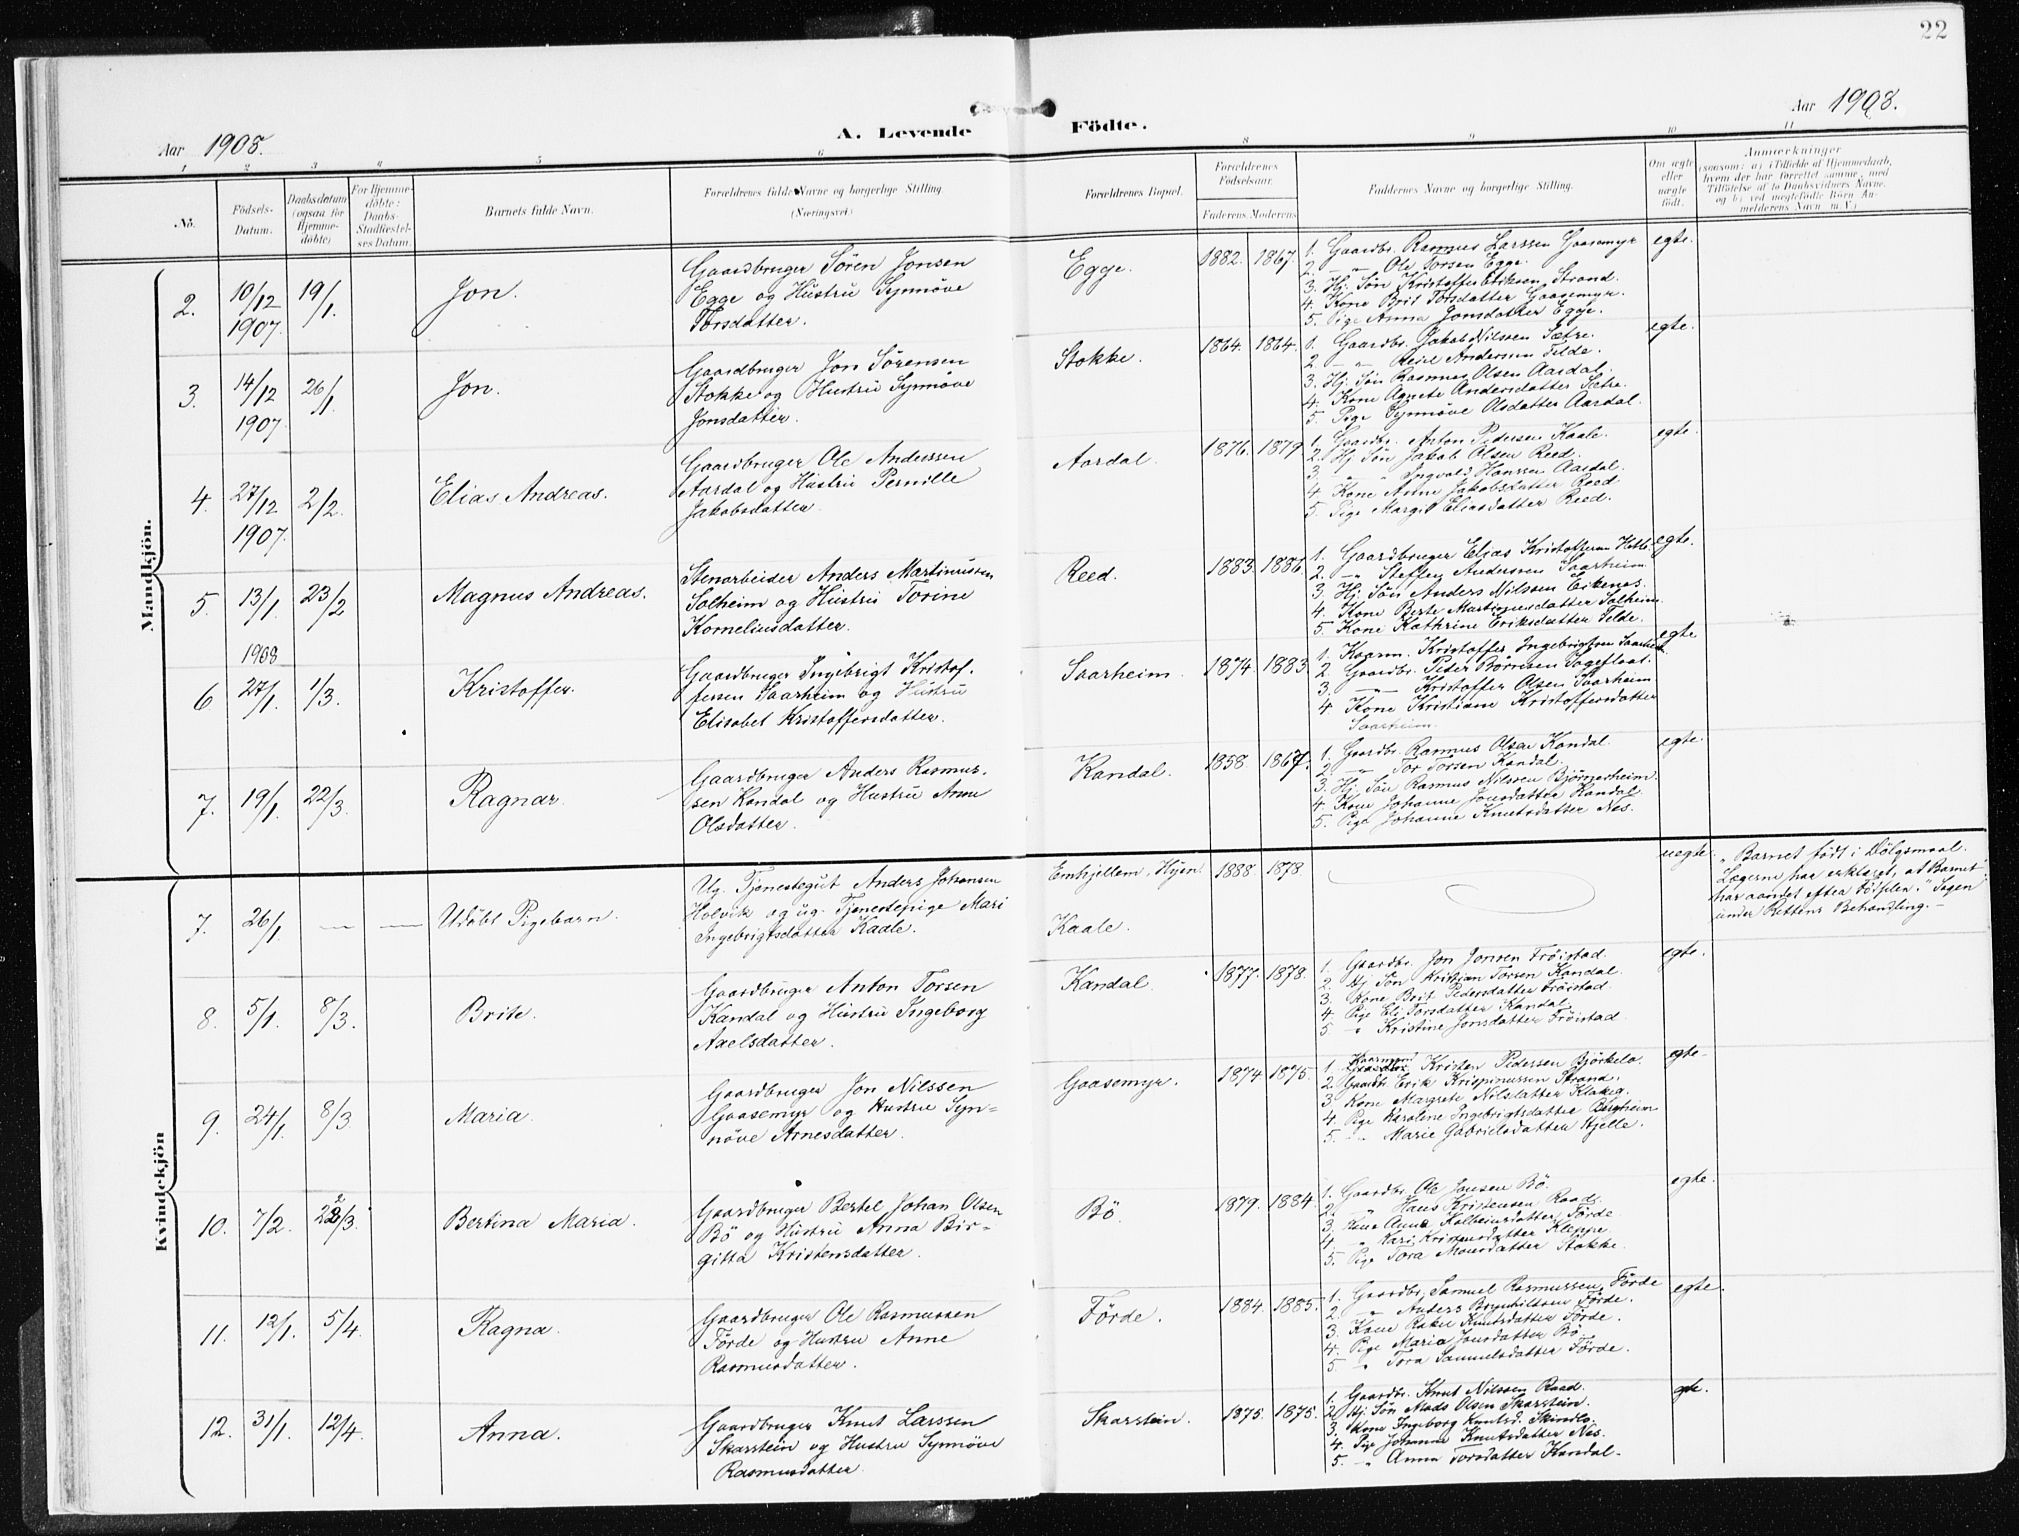 22
Aar 1908.
A. Levende Födte.
Aar 1908.
1 2 3 4 5 6 8 9 10 11
No.
Födsels-Datum.
Daabsdatum (ogsaa for Hjemme-döbte)
For Hjemme-döbte: Daabs-Stadfæstel-ses Datum.
Barnets fulde Navn.
Forældrenes fulde Navne og borgerlige Stilling.
(Næringsvei)
Forældrenes Bopæl.
Forældrenes Födselsaar.
Faderens. Moderens
Faddernes Navne og borgerlige Stilling.
Om ægte eller uægte födt.
Anmærkninger
(saasom: a) i Tilfælde af Hjemmedaab, hvem der har forrettet samme, med Tilföielse af to Daabsvidners Navne, og b) ved uægtefödte Börn An-melderens Navn m. V.)
Mandkjön.
2. 10/12 1907. 19/1. Jon.
Gaardbruger Sören Jonsen
Egge og Hustru Synnöve
Torsdatter.
Egge. 1882. 1867.
1. Gaardbr. Rasmus Larssen Gaasemyr
2. " Ole Torsen Egge.
3. Hj. Søn Kristoffer Eriksen Strand.
4. Kone Brit Torsdatter Gaasemyr.
5. Pige Anna Jonsdatter Egge.
egte.
3. 14/12 1907 26/1. Jon.
Gaardbruger Jon Sörensen
Stokke og Hustru Synnöve
Jonsdatter.
Stokke. 1864. 1864.
1. Gaardbr. Jakob Nilssen Sætre.
2. " Andersen Felde.
3. Hj. Søn Rasmus Olsen Aardal.
4. Kone Agnete Andersdatter Sætre.
5. Pige Synnöve Olsdatter Aardal.
egte.
4. 27/12 1907. 2/2. Elias Andreas.
Gaardbruger Ole Anderssen
Aardal og Hustru Pernille
Jakobsdatter.
Aardal. 1876. 1879
1. Gaardbr. Anton Pedersen Kaale.
2. Hj. Søn Jakob Olsen Reed.
3. " Ingvald Hanssen Aardal.
4. Kone Anne Jakobsdatter Reed
5. Pige Margit Eliasdatter Reed.
egte.
5. 13/1 1908 23/2 Magnus Andreas.
Stenarbeider Anders Martinussen
Solheim og Hustru Torine
Korneliusdatter.
Reed. 1883. 1886
1. Gaardbruger Elias Kristoffersen
2. " Steffen Anderssen Saarheim
3. Hj. Søn Anders Nilssen Eikenes.
4. Kone Berte Martinusdatter Solheim.
5. Kone Kathrine Eriksdatter Felde.
egte.
6 27/1. 1/3. Kristoffer.
Gaardbruger Ingebrigt Kristof-
fersen Saarheim og Hustru
Elisabet Kristoffersdatter.
Saarheim. 1874. 1883
1. Kaarm. Kristoffer Ingebrigtsen Saarheim
2. Gaardbr. Peder
3. " Kristoffer Olsen Saarheim.
4 Kone Kristiane Kristoffersdatter
Saarheim.
egte
7. 19/1. 22/3. Ragnar.
Gaardbruger Anders Rasmus-
sen Kandal og Hustru Anne
Olsdatter.
Kandal. 1858 1867.
1. Gaardbr. Rasmus Olsen Kandal.
2. " Tor Torsen Kandal.
3. Hj. Søn Rasmus Nilssen Bjönnerheim.
4. Kone Johanne Jonsdatter Kandal.
5. Pige Johanne Knutsdatter Nes.
egte.
Kvindekjön
7. 26/1. — — Udöbt Pigebarn.
Ug. Tjenestegut Anders Johansen
Holvik og ug. Tjenestepige Mari
Ingebrigtsdatter Kaale.
Emhjellem, Hyen.
Kaale.
1888 1878.
uegte.
"Barnet födt i Dölgsmaal.
Lægerne har erklæret, at Barnet
har aandet efter Födselen." Sagen
under Rettens Behandling.—
8. 5/1. 8/3. Brite.
Gaardbruger Anton Torsen
Kandal og Hustru Ingeborg
Axelsdatter.
Kandal. 1877. 1878.
1. Gaardbr. Jon Jonsen Fröistad.
2. Hj Søn Kristian Torsen Kandal.
3. Kone Brit Pedersdatter Fröistad.
4 Pige Eli Torsdatter Kandal.
5 " Kristine Jonsdatter Fröistad.
egte.
9. 24/1. 8/3 Maria.
Gaardbruger Jon Nilssen
Gaasemyr og Hustru Syn-
növe Arnesdatter.
Gaasemyr. 1874 1875.
1. Kaarmand Kristen Pedersen Björkelo.
2. Gaardbr. Erik Krispinussen Strand.
3. Kone Margrete Nilsdatter Klakeg.
4. Pige Karoline Ingebrigtsdatter Bergheim
5. " Marie Gabrielsdatter Hjelle.
egte.
10. 7/2. 22/3. Bertina Maria.
Gaardbruger Bertel Johan Olsen
Bö og Hustru Anna Bir-
gitta Kristensdatter.
Bö. 1879. 1884.
1. Gaardbr. Ole Jonsen Bö.
2. " Hans Kristensen Raad.
3. Kone Anna Kolbeinsdatter Förde
4. " Kari Kristensdatter Kleppe.
5. Pige Tora Monsdatter Stokke.
egte.
11. 12/1. 5/4. Ragna.
Gaardbruger Ole Rasmussen
Förde og Hustru Anne
Rasmusdatter.
Förde. 1884. 1885.
1. Gaardbr. Samuel Rasmussen Förde
2. " Anders Brynhildsen Förde.
3. Kone Rakel Knutsdatter Förde.
4. Pige Maria Jonsdatter Bö
5. " Tora Samuelsdatter Förde.
egte.
12. 31/1. 12/4. Anna.
Gaardbruger Knut Larssen
Skarstein og Hustru Synnöve
Rasmusdatter.
Skarstein. 1875. 1875.
1. Gaardbr. Knut Nilssen Raad.
2. Hj. Søn Mads Olsen Skarstein.
3. Kone Ingeborg Knutsd. Skindlo.
4. Pige Johanne Knutsdatter Nes.
5. " Anna Torsdatter Kandal.
gte.